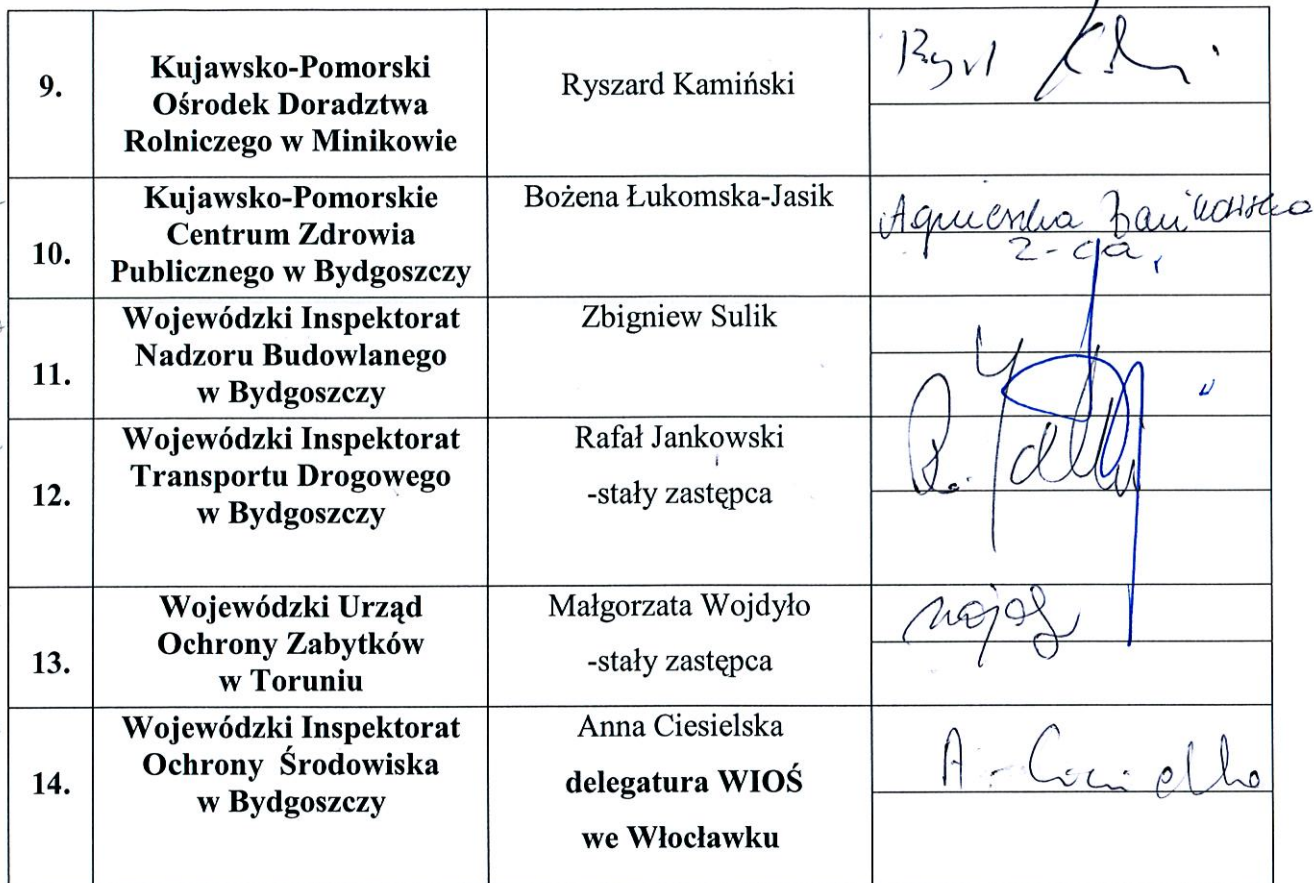 9.
Kujawsko-Pomorski
Ośrodek Doradztwa
Rolniczego w Minikowie
Ryszard Kamiński
10.
Kujawsko-Pomorskie
Centrum Zdrowia
Publicznego w Bydgoszczy
Bożena Łukomska-Jasik
Agnieszka
z-ca
11.
Wojewódzki Inspektorat
Nadzoru Budowlanego
w Bydgoszczy
Zbigniew Sulik
12.
Wojewódzki Inspektorat
Transportu Drogowego
w Bydgoszczy
Rafał Jankowski
-stały zastępca
13.
Wojewódzki Urząd
Ochrony Zabytków
w Toruniu
Małgorzata Wojdyło
-stały zastępca
14.
Wojewódzki Inspektorat
Ochrony Środowiska
w Bydgoszczy
Anna Ciesielska
delegatura WIOŚ
we Włocławku